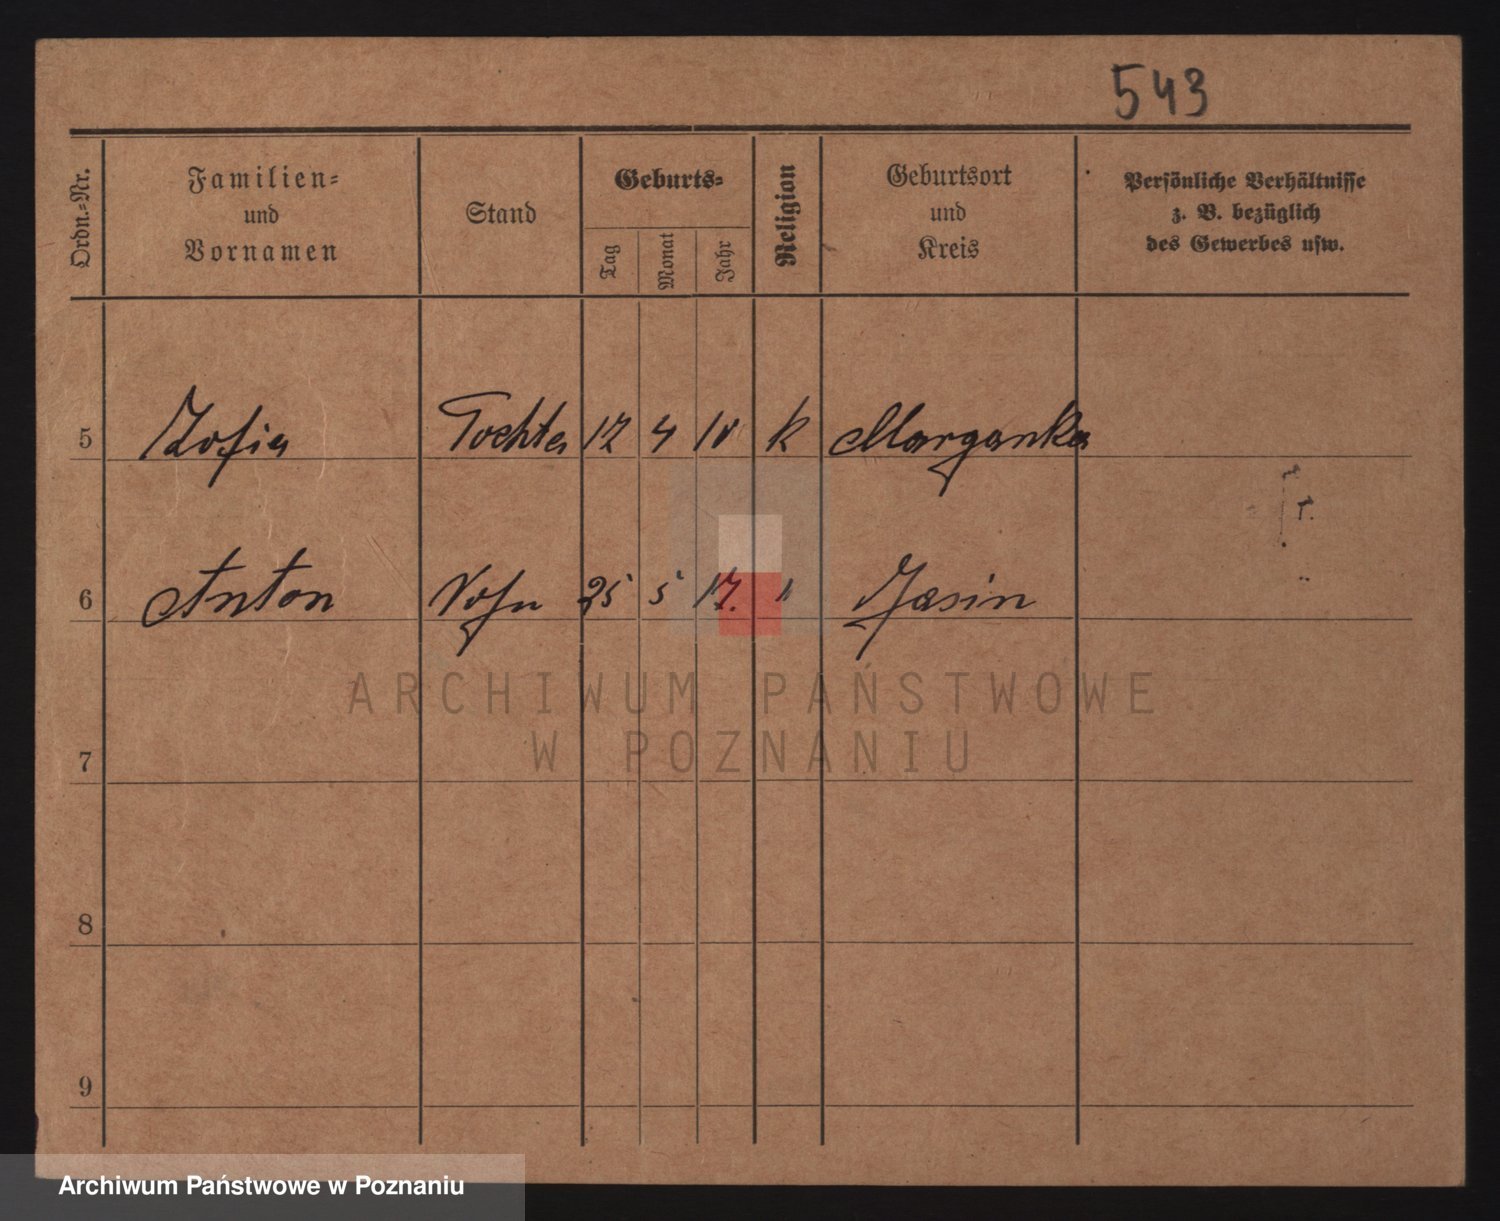 543
Ordn.-Nr.
Familien-
und
Vornamen
Stand
Geburts-
Tag
Monat
Jahr
Religion
Geburtsort
und
Kreis
Persönliche Verhältnisse
z. B. bezüglich
des Gewerbes usw.
5 Zofia Tochter 17 4 10 k Marganka
6 Anton Sohn 25 5 17. " Jasin
ARCHIWUM PAŃSTWOWE
W POZNANIU
7
8
9
Archiwum Państwowe w Poznaniu